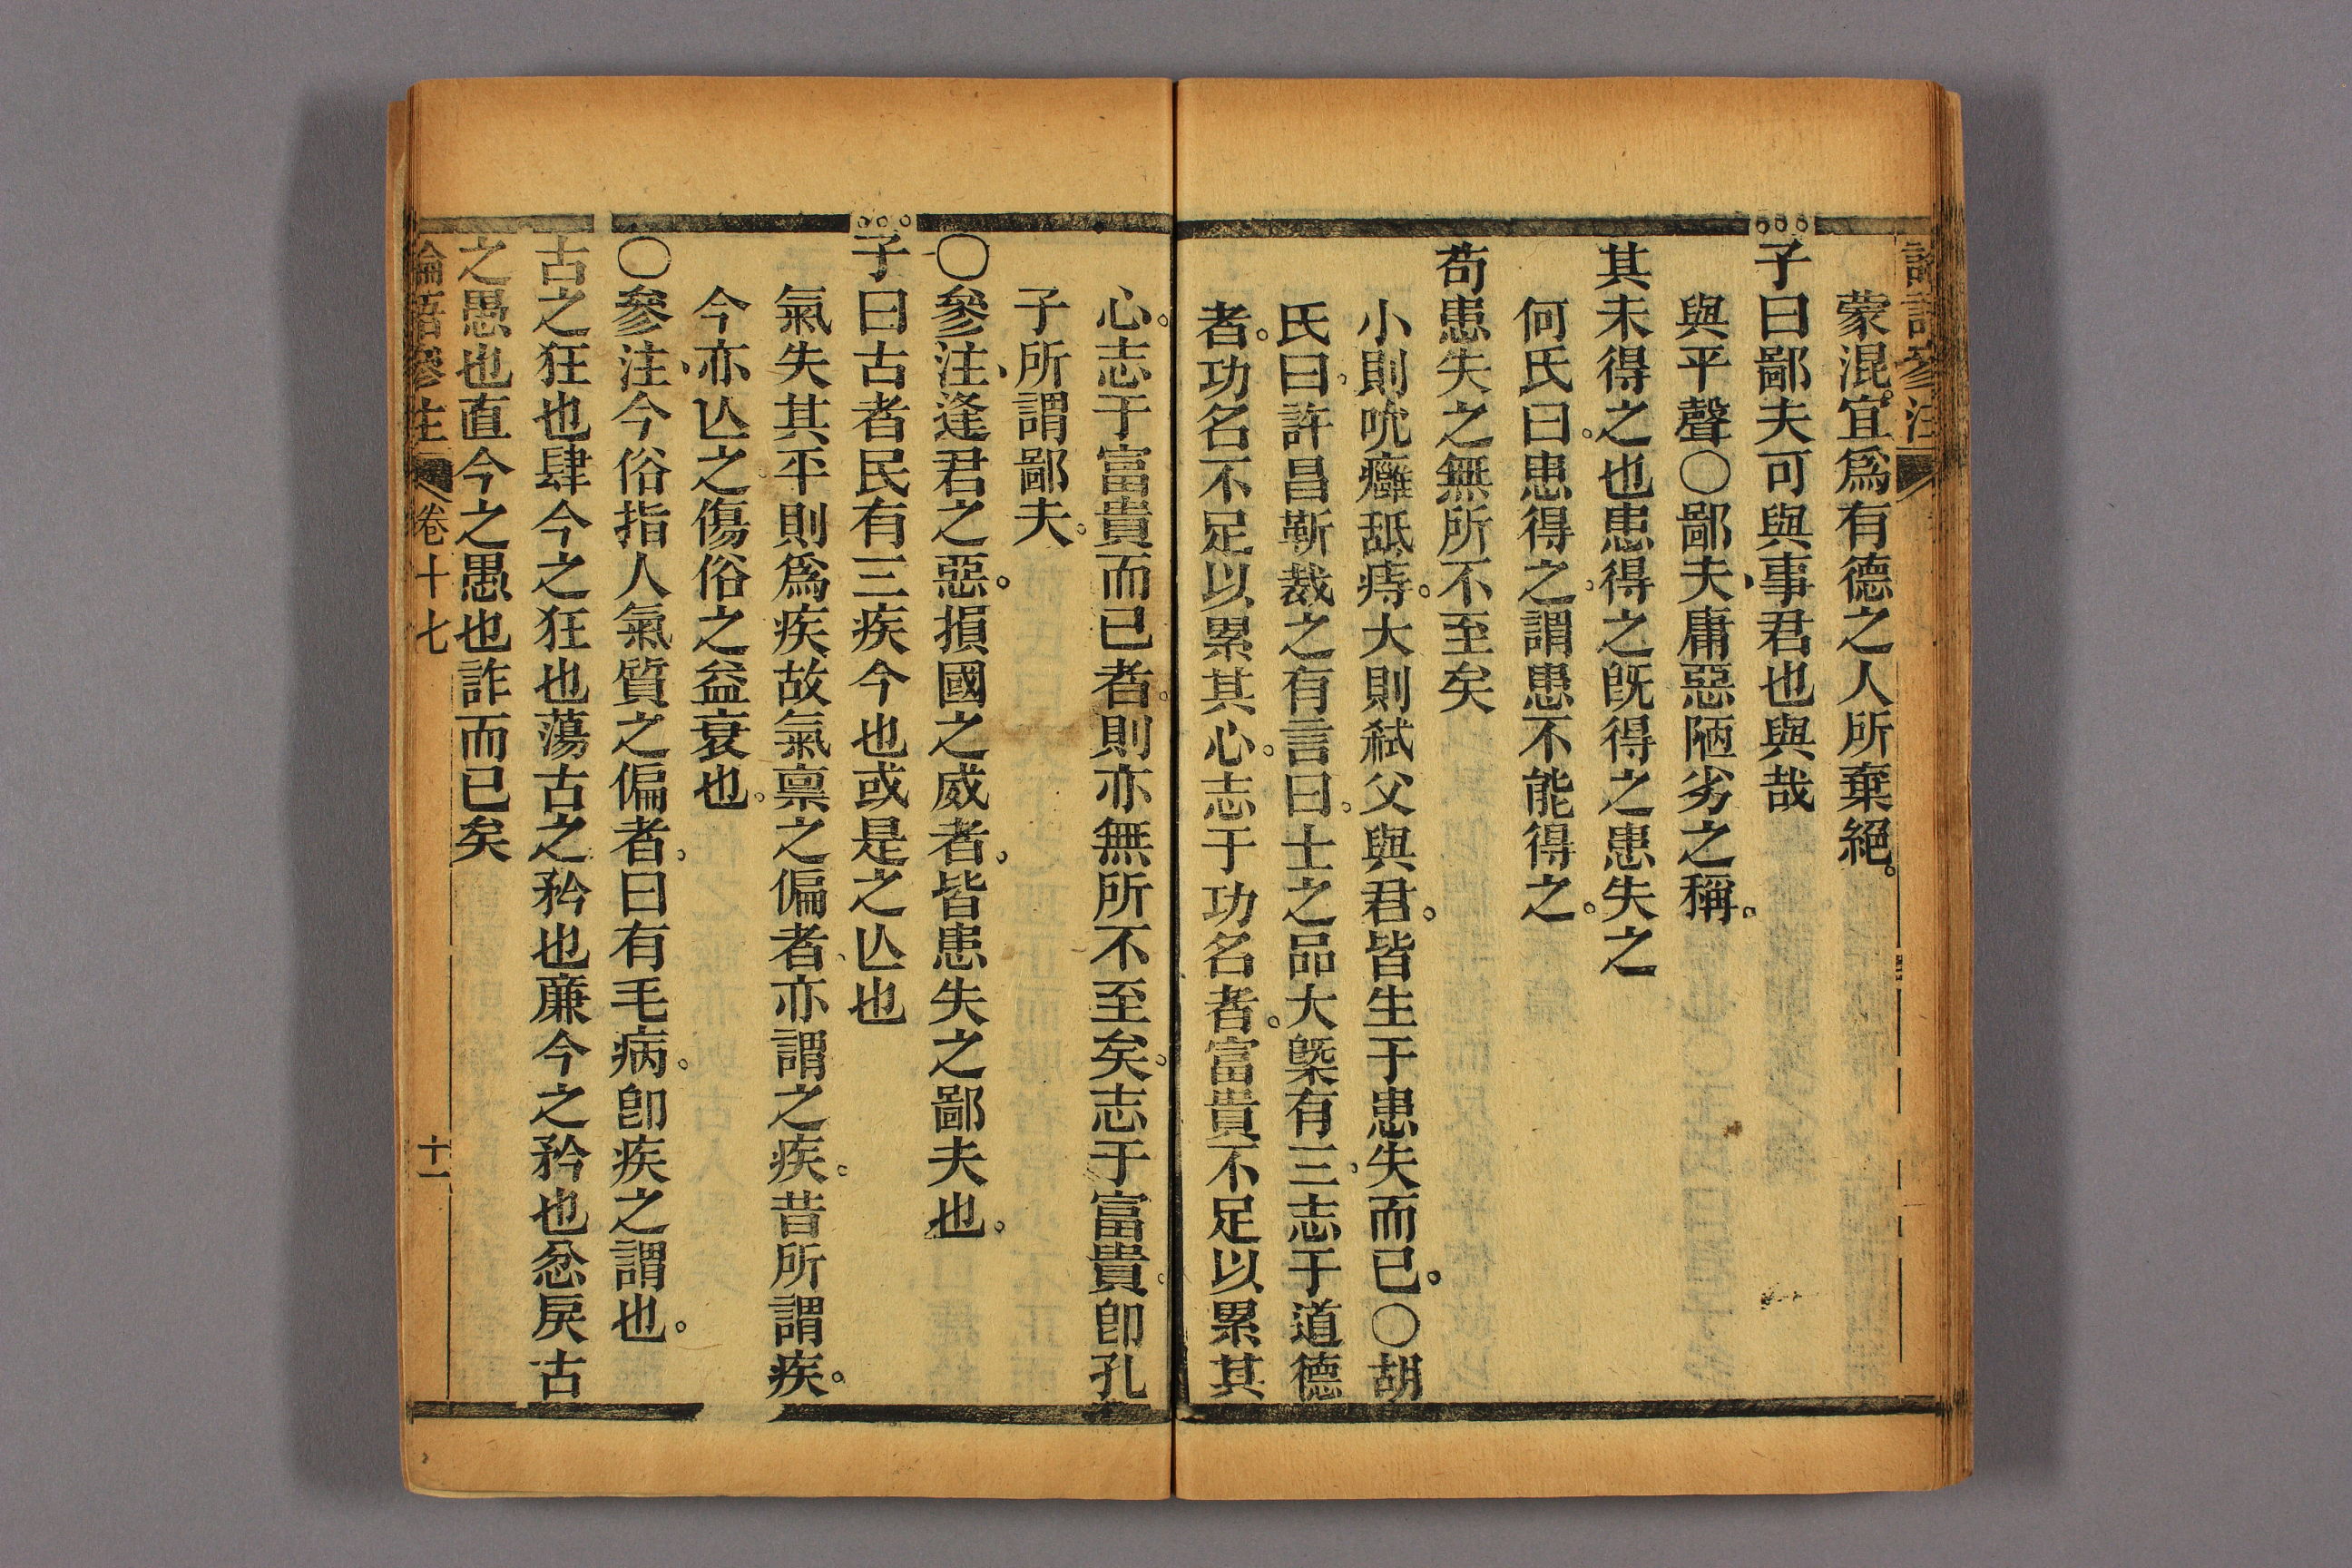 蒙混。宜爲有德之人所棄絕。
子曰鄙夫可與事君也與哉
與平聲〇鄙夫、庸惡陋劣之稱。
其未得之也患得之旣得之患失之
何氏曰。患得之。謂患不能得之。
苟患失之無所不至矣
小則吮癰舐痔。大則弑父與君。皆生于患失而已。〇胡
氏曰。許昌靳裁之有言曰。士之品大槩有三。志于道德
者。功名不足以累其心。志于功名者。富貴不足以累其
心。志于富貴而已者。則亦無所不至矣。志于富貴。卽孔
子所謂鄙夫。
〇參注、逢君之惡。損國之威者。皆患失之鄙夫也。
子曰古者民有三疾今也或是之亾也
氣失其平則爲疾。故氣稟之偏者、亦謂之疾。昔所謂疾。
今亦亾之。傷俗之益衰也。
〇參注、今俗指人氣質之偏者。曰有毛病。卽疾之謂也。
古之狂也肆今之狂也蕩古之矜也廉今之矜也忿戾古
之愚也直今之愚也詐而已矣
論語參注 卷十七 十一